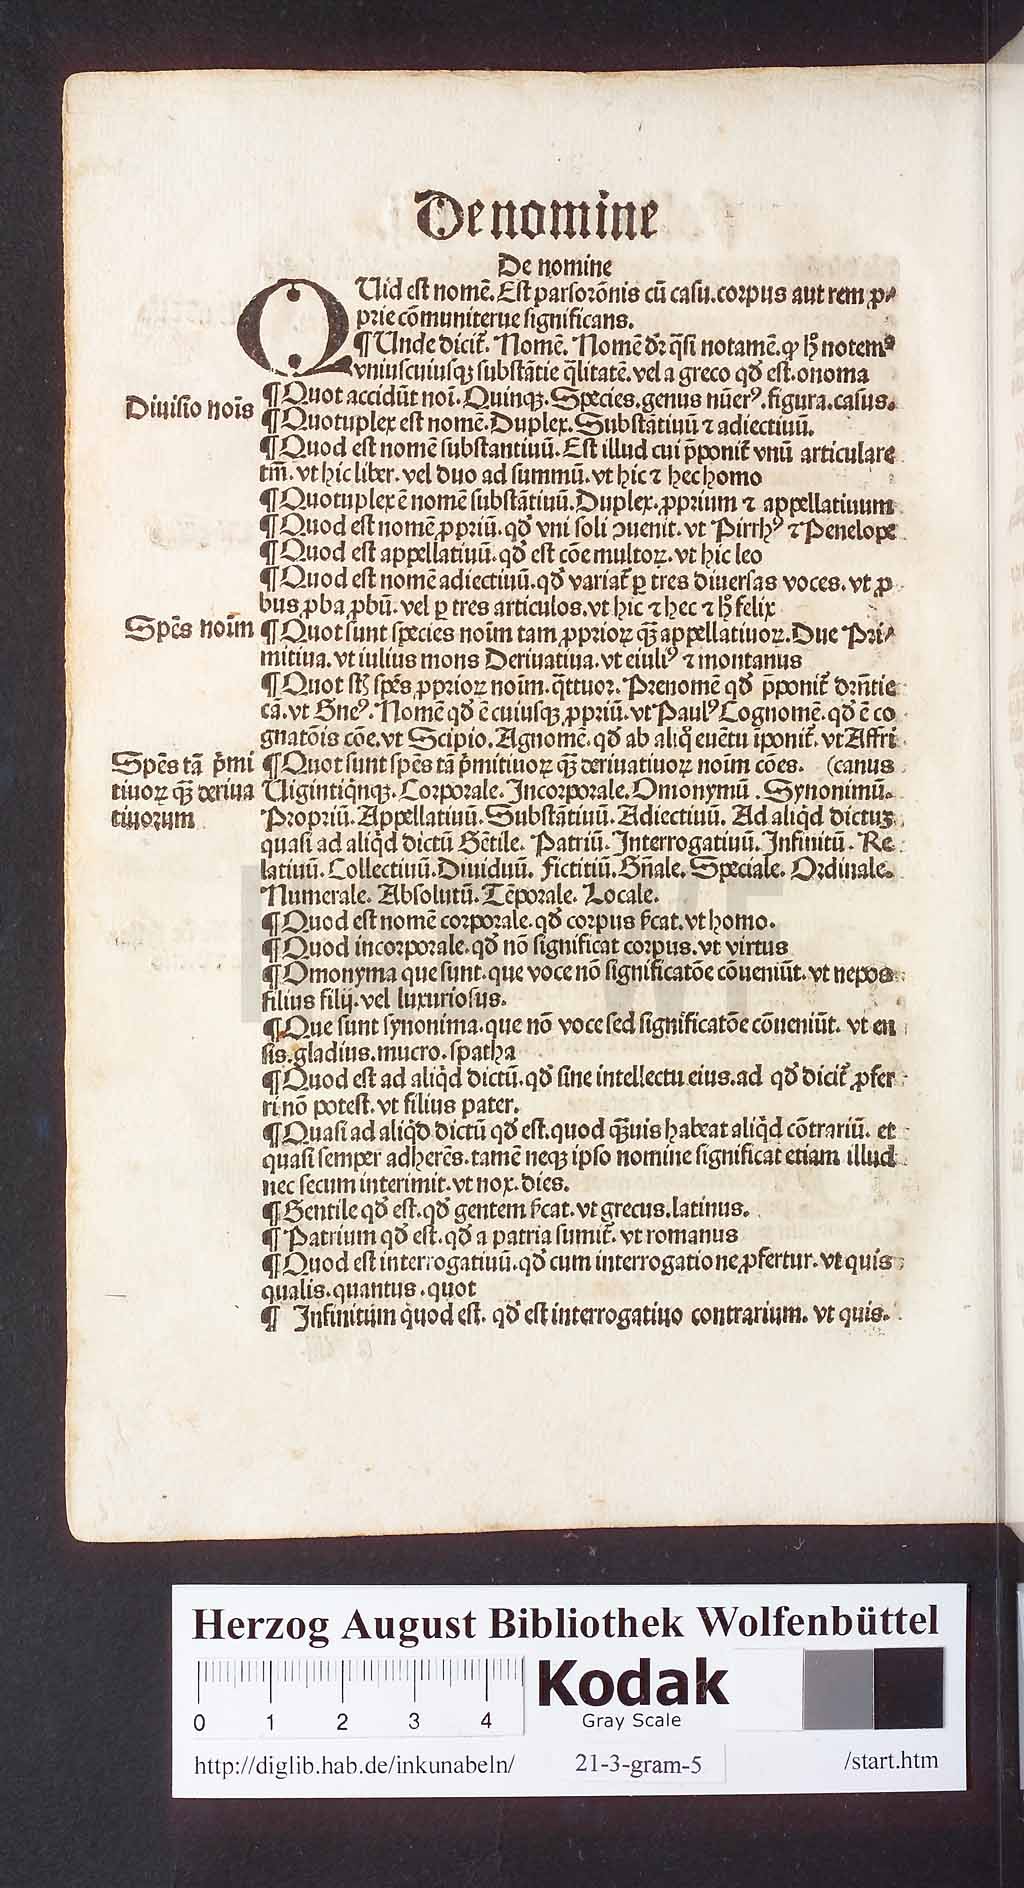 De nomine
De nomine
QUid est nomē. Est pars orōnis cū casu. corpus aut rem ꝓ⸗
prie cōmuniterue significans.
¶ Unde dicit᷑. Nomē. Nomē dr̄ q̄si notamē. ꝙ hͦ notemꝰ
vniuscuiusqꝫ substātie q̄litatē. vel a greco qd̛ est. onoma
Diuisio noīs
¶ Quot accidūt noī. Quinqꝫ. Species. genus nūerꝰ. figura. casus.
¶ Quotuplex est nomē. Duplex. Substātiuū ⁊ adiectiuū.
¶ Quod est nomē substantiuū. Est illud cui p̄ponit᷑ vnū articulare
tm̄. vt hic liber. vel duo ad summū. vt hic ⁊ hec homo
¶ Quotuplex ē nomē substātiuū. Duplex. ꝓprium ⁊ appellatiuum
¶ Quod est nomē ꝓpriū. qd̛ vni soli ↄuenit. vt Pirrhꝰ ⁊ Penelope
¶ Quod est appellatiuū. qd̛ est cōe multoꝝ. vt hic leo
¶ Quod est nomē adiectiuū. qd̛ variat᷑ ꝑ tres diuersas voces. vt ꝓ
bus ꝓba ꝓbū. vel ꝑ tres articulos. vt hic ⁊ hec ⁊ hͦ felix
Spēs noīm
¶ Quot sunt species noīm tam ꝓprioꝝ qꝫ̄ appellatiuoꝝ. Due Pri⸗
mitiua. vt iulius mons Deriuatiua. vt eiuliꝰ ⁊ montanus
¶ Quot st̄ spēs ꝓprioꝝ noīm. q̄ttuor. Prenomē qd̛ p̄ponit᷑ drn̄tie
cā. vt Gneꝰ. Nomē qd̛ ē cuiusqꝫ ꝓpriū. vt Paulꝰ Cognomē. qd̛ ē co
gnatōis cōe. vt Scipio. Agnomē. qd̛ ab aliq̊ euētu īponit᷑. vt Affri
Spēs tā p̄mi
tiuoꝝ qꝫ̄ deriua
tiuorum
¶ Quot sunt spēs tā p̄mitiuoꝝ qꝫ̄ deriuatiuoꝝ noīm cōes. (canus
Uigintiqīnqꝫ. Corporale. Incorporale. Omonymū. Synonimū.
Propriū. Appellatiuū. Substātiuū. Adiectiuū. Ad aliqͥd dictuꝫ
quasi ad aliqͥd dictū Gētile. Patriū. Interrogatiuū. Infinitū. Re
latiuū. Collectiuū. Diuiduū. Fictitiū. Gn̄ale. Speciale. Ordinale.
Numerale. Absolutū. Tēporale. Locale.
¶ Quod est nomē corporale. qd̛ corpus sͥcat. vt homo.
¶ Quod incorporale. qd̛ nō significat corpus. vt virtus
¶ Omonyma que sunt. que voce nō significatōe cōueniūt. vt nepos
filius filij. vel luxuriosus.
¶ Que sunt synonima. que nō voce sed significatōe cōueniūt. vt en
sis. gladius. mucro. spatha
¶ Quod est ad aliqͥd dictū. qd̛ sine intellectu eius. ad qd̛ dicit᷑ ꝓfer
ri nō potest. vt filius pater.
¶ Quasi ad aliqͥd dictū qd̛ est. quod qꝫ̄uis habeat aliqͥd cōtrariū. et
quasi semper adherēs. tamē neqꝫ ipso nomine significat etiam illud
nec secum interimit. vt nox. dies.
¶ Gentile qd̛ est. qd̛ gentem sͥcat. vt grecus. latinus.
¶ Patrium qd̛ est. qd̛ a patria sumit᷑. vt romanus
¶ Quod est interrogatiuū. qd̛ cum interrogatione ꝓfertur. vt quis
qualis. quantus. quot
¶ Infinitum quod est. qd̛ est interrogatiuo contrarium. vt quis.
Herzog August Bibliothek Wolfenbüttel
0 1 2 3 4
Kodak
Gray Scale
http://diglib.hab.de/inkunabeln/ 21-3-gram-5 /start.htm